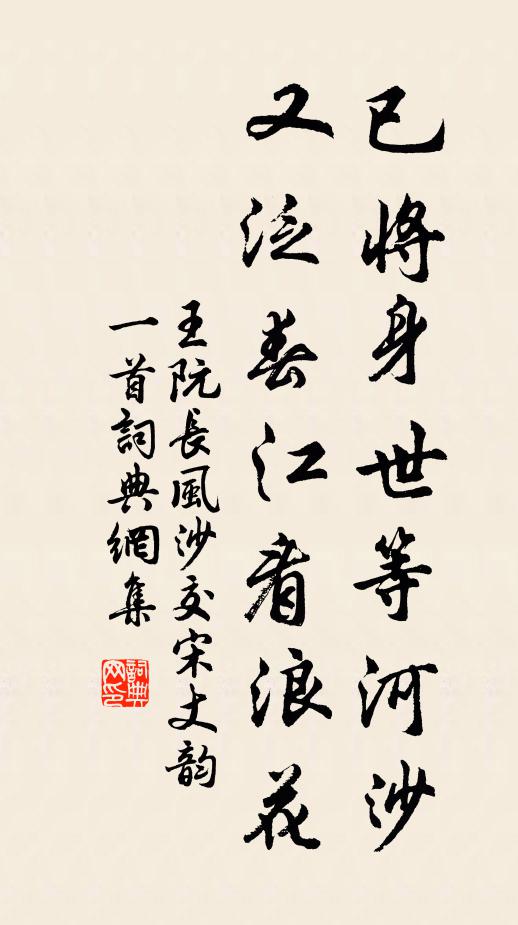 已將身世等河沙
又泛春江看浪花
王阮長風沙交宋丈韻
一首詞典網集
詞典
网印